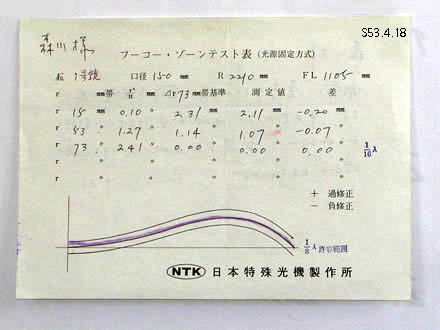 S53.4.18
森川様
フーコー・ゾーンテスト表(光源固定方式)
1号鏡 口径 150 mm R 2210 mm FL 1105 mm
r mm帯 r²/R Δr73mm帯基準 測定値 差
r 15 mm〃 0.10 〃 2.31 〃 2.11 〃 -0.20 〃
r 53 〃 1.27 〃 1.14 〃 1.07 〃 -0.07 〃
r 73 〃 2.41 〃 0.00 〃 0.00 〃 0.00 〃 1/16 λ
r 〃 〃 〃 〃 〃
+ 過修正
− 負修正
1/8 λ 許容範囲
NTK 日本特殊光機製作所